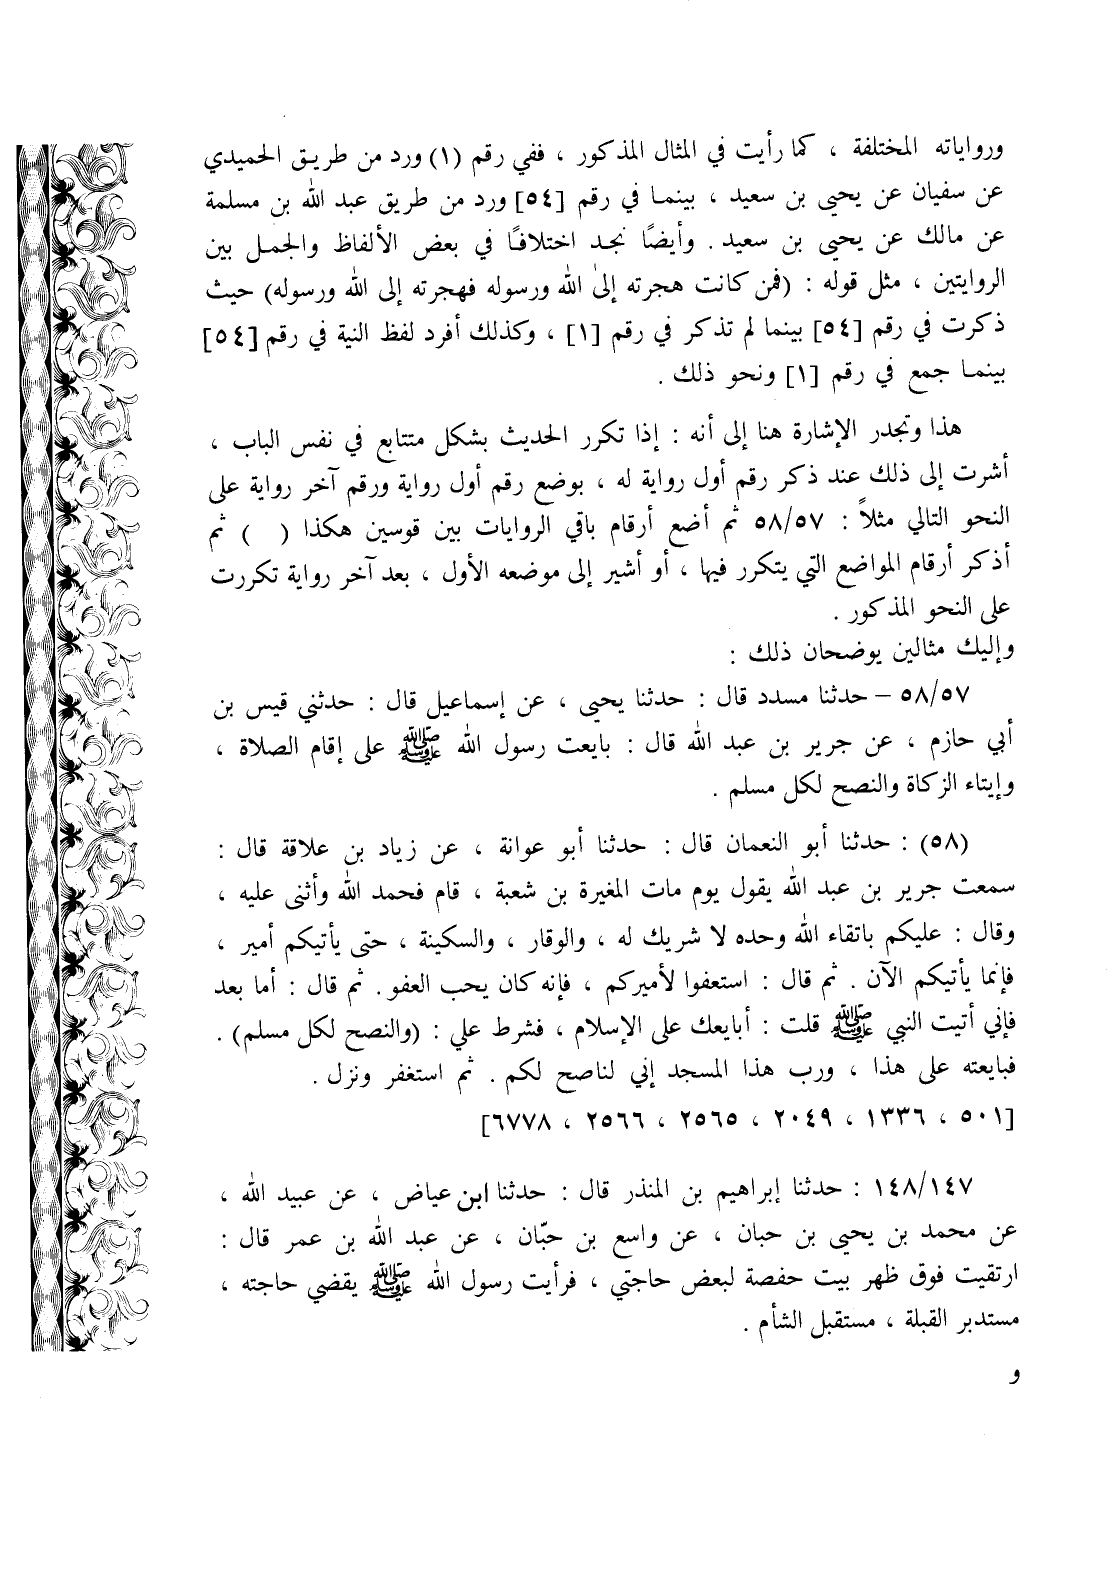 ورواياته المختلفة ، كما رأيت في المثال المذكور ، ففي رقم (١) ورد من طريق الحميدي
عن سفيان عن يحيى بن سعيد ، بينما في رقم [٥٤] ورد من طريق عبد الله بن مسلمة
عن مالك عن يحيى بن سعيد . وأيضًا نجد اختلافًا في بعض الألفاظ والجمل بين
الروايتين ، مثل قوله : (فمن كانت هجرته إلىٰ الله ورسوله فهجرته إلى الله ورسوله) حيث
ذكرت في رقم [٥٤] بينما لم تذكر في رقم [١] ، وكذلك أفرد لفظ النية في رقم [٥٤]
بينما جمع في رقم [١] ونحو ذلك .
هذا وتجدر الإشارة هنا إلى أنه : إذا تكرر الحديث بشكل متتابع في نفس الباب ،
أشرت إلى ذلك عند ذكر رقم أول رواية له ، بوضع رقم أول رواية ورقم آخر رواية على
النحو التالي مثلاً : ٥٨/٥٧ ثم أضع أرقام باقي الروايات بين قوسين هكذا ( ) ثم
أذكر أرقام المواضع التي يتكرر فيها ، أو أشير إلى موضعه الأول ، بعد آخر رواية تكررت
على النحو المذكور .
وإليك مثالين يوضحان ذلك :
٥٨/٥٧ – حدثنا مسدد قال : حدثنا يحيى ، عن إسماعيل قال : حدثني قيس بن
أبي حازم ، عن جرير بن عبد الله قال : بايعت رسول الله ﷺ على إقام الصلاة ،
وإيتاء الزكاة والنصح لكل مسلم .
(٥٨) : حدثنا أبو النعمان قال : حدثنا أبو عوانة ، عن زياد بن علاقة قال :
سمعت جرير بن عبد الله يقول يوم مات المغيرة بن شعبة ، قام فحمد الله وأثنى عليه ،
وقال : عليكم باتقاء الله وحده لا شريك له ، والوقار ، والسكينة ، حتى يأتيكم أمير ،
فإنما يأتيكم الآن . ثم قال : استعفوا لأميركم ، فإنه كان يحب العفو . ثم قال : أما بعد
فإني أتيت النبي ﷺ قلت : أبايعك على الإسلام ، فشرط علي : (والنصح لكل مسلم) .
فبايعته على هذا ، ورب هذا المسجد إني لناصح لكم . ثم استغفر ونزل .
[٥٠١ ، ١٣٣٦ ، ٢٠٤٩ ، ٢٥٦٥ ، ٢٥٦٦ ، ٦٧٧٨]
١٤٨/١٤٧ : حدثنا إبراهيم بن المنذر قال : حدثنا ابن عياض ، عن عبيد الله ،
عن محمد بن يحيى بن حبان ، عن واسع بن حبّان ، عن عبد الله بن عمر قال :
ارتقيت فوق ظهر بيت حفصة لبعض حاجتي ، فرأيت رسول الله ﷺ يقضي حاجته ،
مستدبر القبلة ، مستقبل الشأم .
و